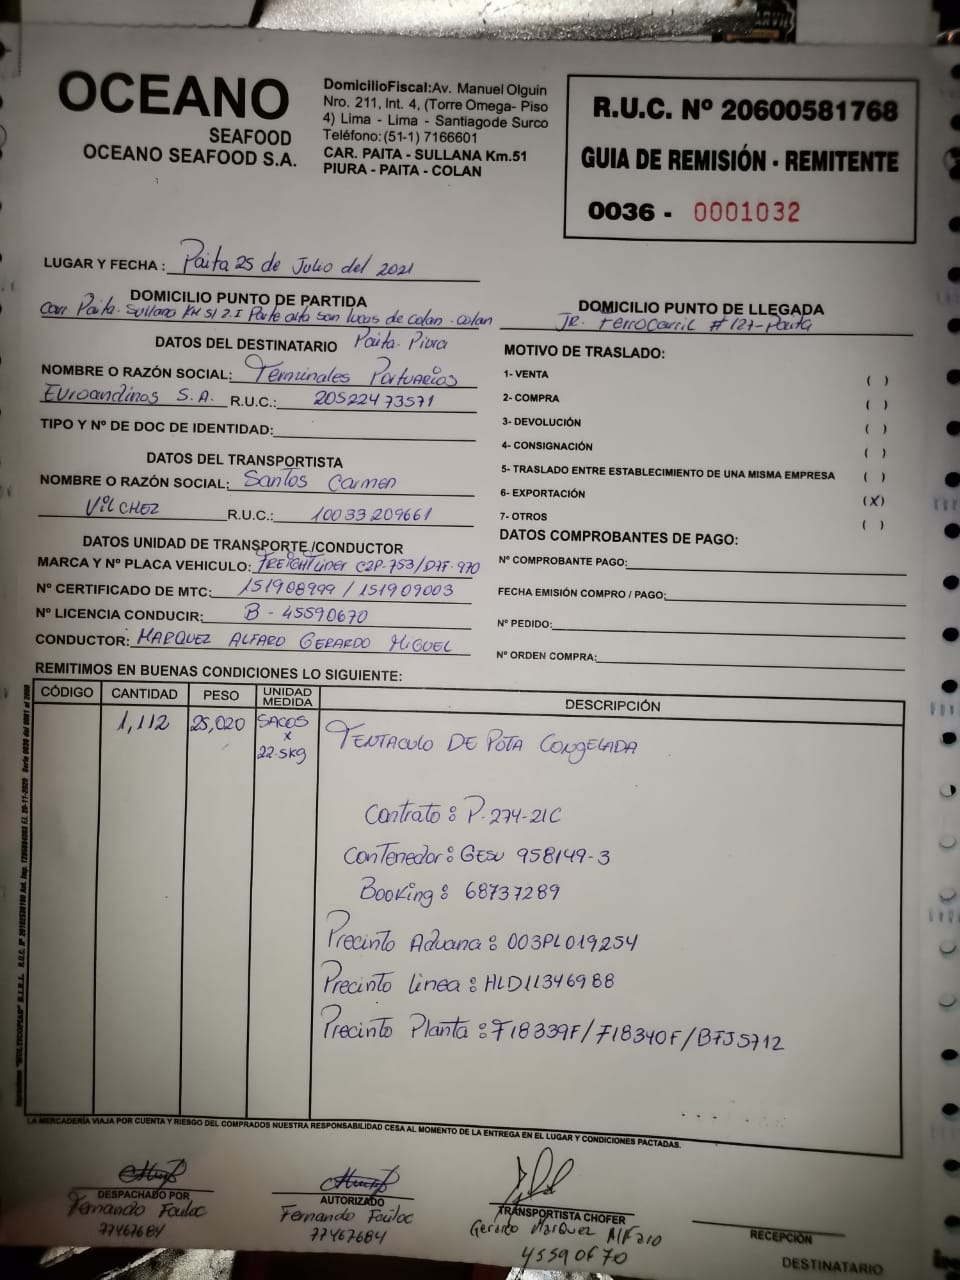 OCEANO
SEAFOOD
OCEANO SEAFOOD S.A.
DomicilioFiscal:Av. Manuel Olguin
Nro. 211, Int. 4, (Torre Omega- Piso
4) Lima - Lima - Santiagode Surco
Teléfono:(51-1) 7166601
CAR. PAITA - SULLANA Km.51
PIURA - PAITA - COLAN
R.U.C. Nº 20600581768
GUIA DE REMISIÓN - REMITENTE
0036 - 0001032
LUGAR Y FECHA : Paita 25 de Julio del 2021
DOMICILIO PUNTO DE PARTIDA
Carr Paita- Sullana KM 51 2.I Parte alta San Lucas de Colan - Colan
Paita- Piura
DOMICILIO PUNTO DE LLEGADA
JR. Ferrocarril # 127-Paita
DATOS DEL DESTINATARIO
NOMBRE O RAZÓN SOCIAL: Terminales Portuarios
Euroandinos S.A. R.U.C.: 20522473571
TIPO Y Nº DE DOC DE IDENTIDAD:
DATOS DEL TRANSPORTISTA
NOMBRE O RAZÓN SOCIAL: Santos Carmen
VilCHEZ R.U.C.: 10033209661
DATOS UNIDAD DE TRANSPORTE /CONDUCTOR
MARCA Y Nº PLACA VEHICULO: FREIGHTliner C2P-753/D7F-970
Nº CERTIFICADO DE MTC: 151908999 / 151909003
Nº LICENCIA CONDUCIR: B - 45590670
CONDUCTOR: MARQUEZ ALFARO GERARDO MIGUEL
MOTIVO DE TRASLADO:
1- VENTA ( )
2- COMPRA ( )
3- DEVOLUCIÓN ( )
4- CONSIGNACIÓN ( )
5- TRASLADO ENTRE ESTABLECIMIENTO DE UNA MISMA EMPRESA ( )
6- EXPORTACIÓN (X)
7- OTROS ( )
DATOS COMPROBANTES DE PAGO:
Nº COMPROBANTE PAGO:
FECHA EMISIÓN COMPRO / PAGO:
Nº PEDIDO:
Nº ORDEN COMPRA:
REMITIMOS EN BUENAS CONDICIONES LO SIGUIENTE:
CÓDIGO CANTIDAD PESO UNIDAD MEDIDA DESCRIPCIÓN
1,112 25,020 SACOS x 22.5kg TENTACULO DE POTA CONGELADA
Contrato : P-274-21C
Contenedor : GESU 958149-3
Booking : 68737289
Precinto Aduana : 003PL019254
Precinto linea : HLD11346988
Precinto Planta : F18339F/F18340F/BFJ5712
LA MERCADERÍA VIAJA POR CUENTA Y RIESGO DEL COMPRADOS NUESTRA RESPONSABILIDAD CESA AL MOMENTO DE LA ENTREGA EN EL LUGAR Y CONDICIONES PACTADAS.
DESPACHADO POR
Fernando Fouloc
77467684
AUTORIZADO
Fernando Fouloc
77467684
TRANSPORTISTA CHOFER
Gerardo Marquez Alfaro
45590670
RECEPCIÓN
DESTINATARIO